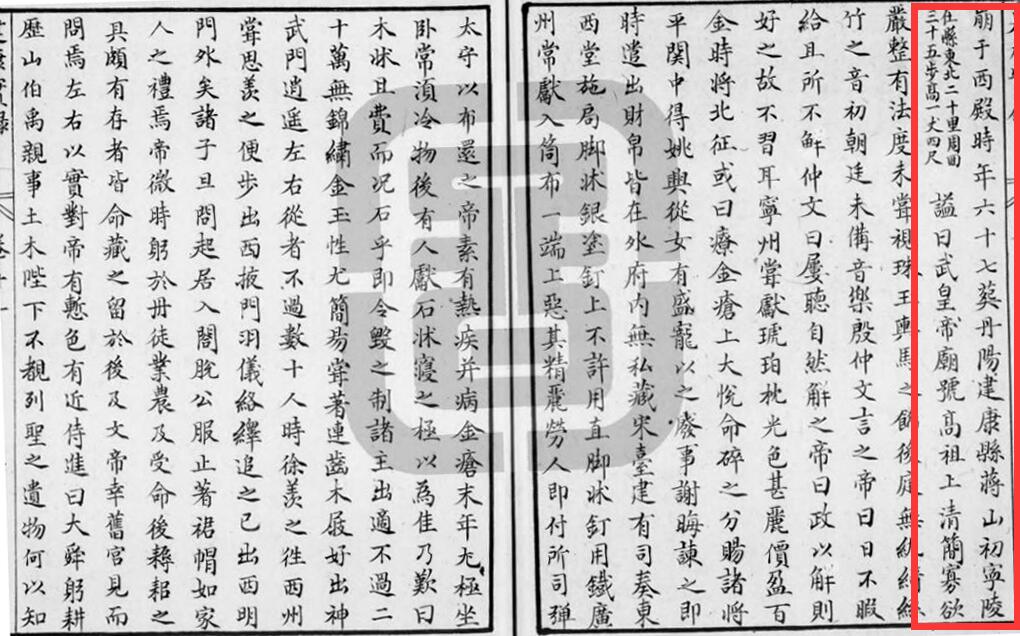 崩于西殿時年六十七葬丹陽建康縣蔣山初寧陵
在縣東北二十里周囬
三十五步髙一丈四尺
諡曰武皇帝廟號髙祖上清簡寡欲
嚴整有法度未嘗視珠玉輿馬之飾後庭無
竹之音初朝廷未備音樂殷仲文言之帝曰日不暇
給且所不解仲文曰屢聽自然解之帝曰政以解則
好之故不習耳寧州嘗獻琥珀枕光色甚麗價盈百
金時將北征或曰療金瘡上大悅命碎之分賜諸將
平関中得姚興從女有盛寵以之廢事謝晦諫之即
時遣出財帛皆在外府内無私藏宋臺建有司奏東
西堂施局脚牀銀塗釘上不許用直脚牀釘用鐵廣
州常獻入筒布一端上惡其精麗勞人即付所司彈
太守以布還之帝素有熱疾并病金瘡末年尤極坐
卧常須冷物後有人獻石牀寢之極以為佳乃歎曰
木牀且費而况石乎即令毀之制諸主出適不過二
十萬無錦繡金玉性尤簡易嘗著連齒木屐好出神
武門逍遥左右從者不過數十人時徐羡之徃西州
嘗思羡之便步出西掖門羽儀絡繹追之已出西明
門外矣諸子旦問起居入閤脫公服止著裙帽如家
人之禮焉帝微時躬於丹徒業農及受命後耨耜之
具頗有存者皆命藏之留於後及文帝幸舊宫見而
問焉左右以實對帝有慙色有近侍進曰大舜躬耕
歷山伯禹親事土木陛下不覩列聖之遺物何以知